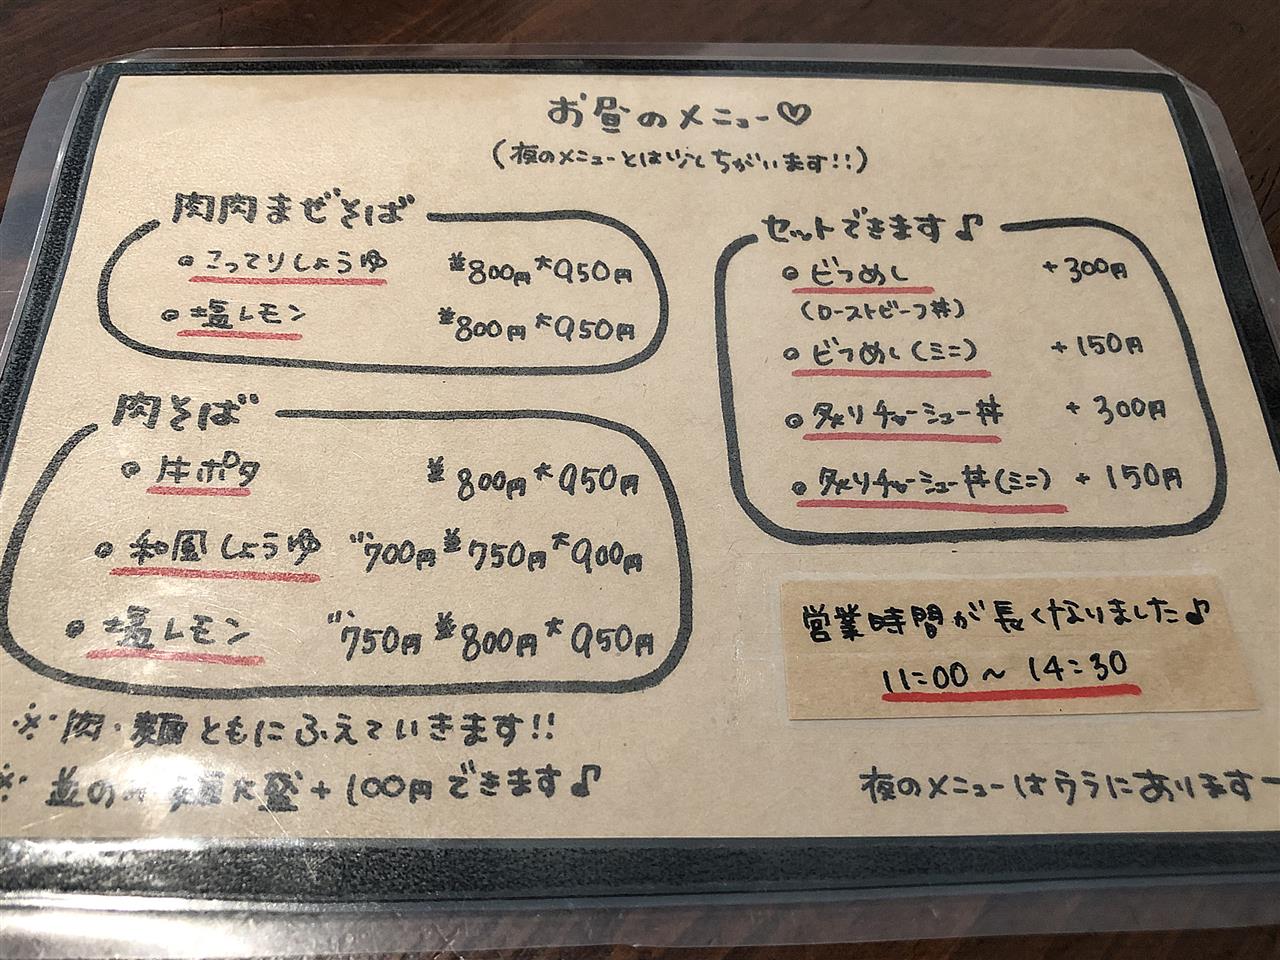 お昼のメニュー♡
(夜のメニューとは少しちがいます!!)
肉肉まぜそば
・こってりしょうゆ 並800円 大950円
・塩レモン 並800円 大950円
肉そば
・牛ポタ 並800円 大950円
・和風しょうゆ ミニ700円 並750円 大900円
・塩レモン ミニ750円 並800円 大950円
※肉・麺ともにふえていきます!!
※並のみ 麺大盛+100円できます♪
セットできます♪
・ビフめし +300円
(ローストビーフ丼)
・ビフめし(ミニ) +150円
・炙りチャーシュー丼 +300円
・炙りチャーシュー丼(ミニ) +150円
営業時間が長くなりました♪
11:00～14:30
夜のメニューはウラにありますー